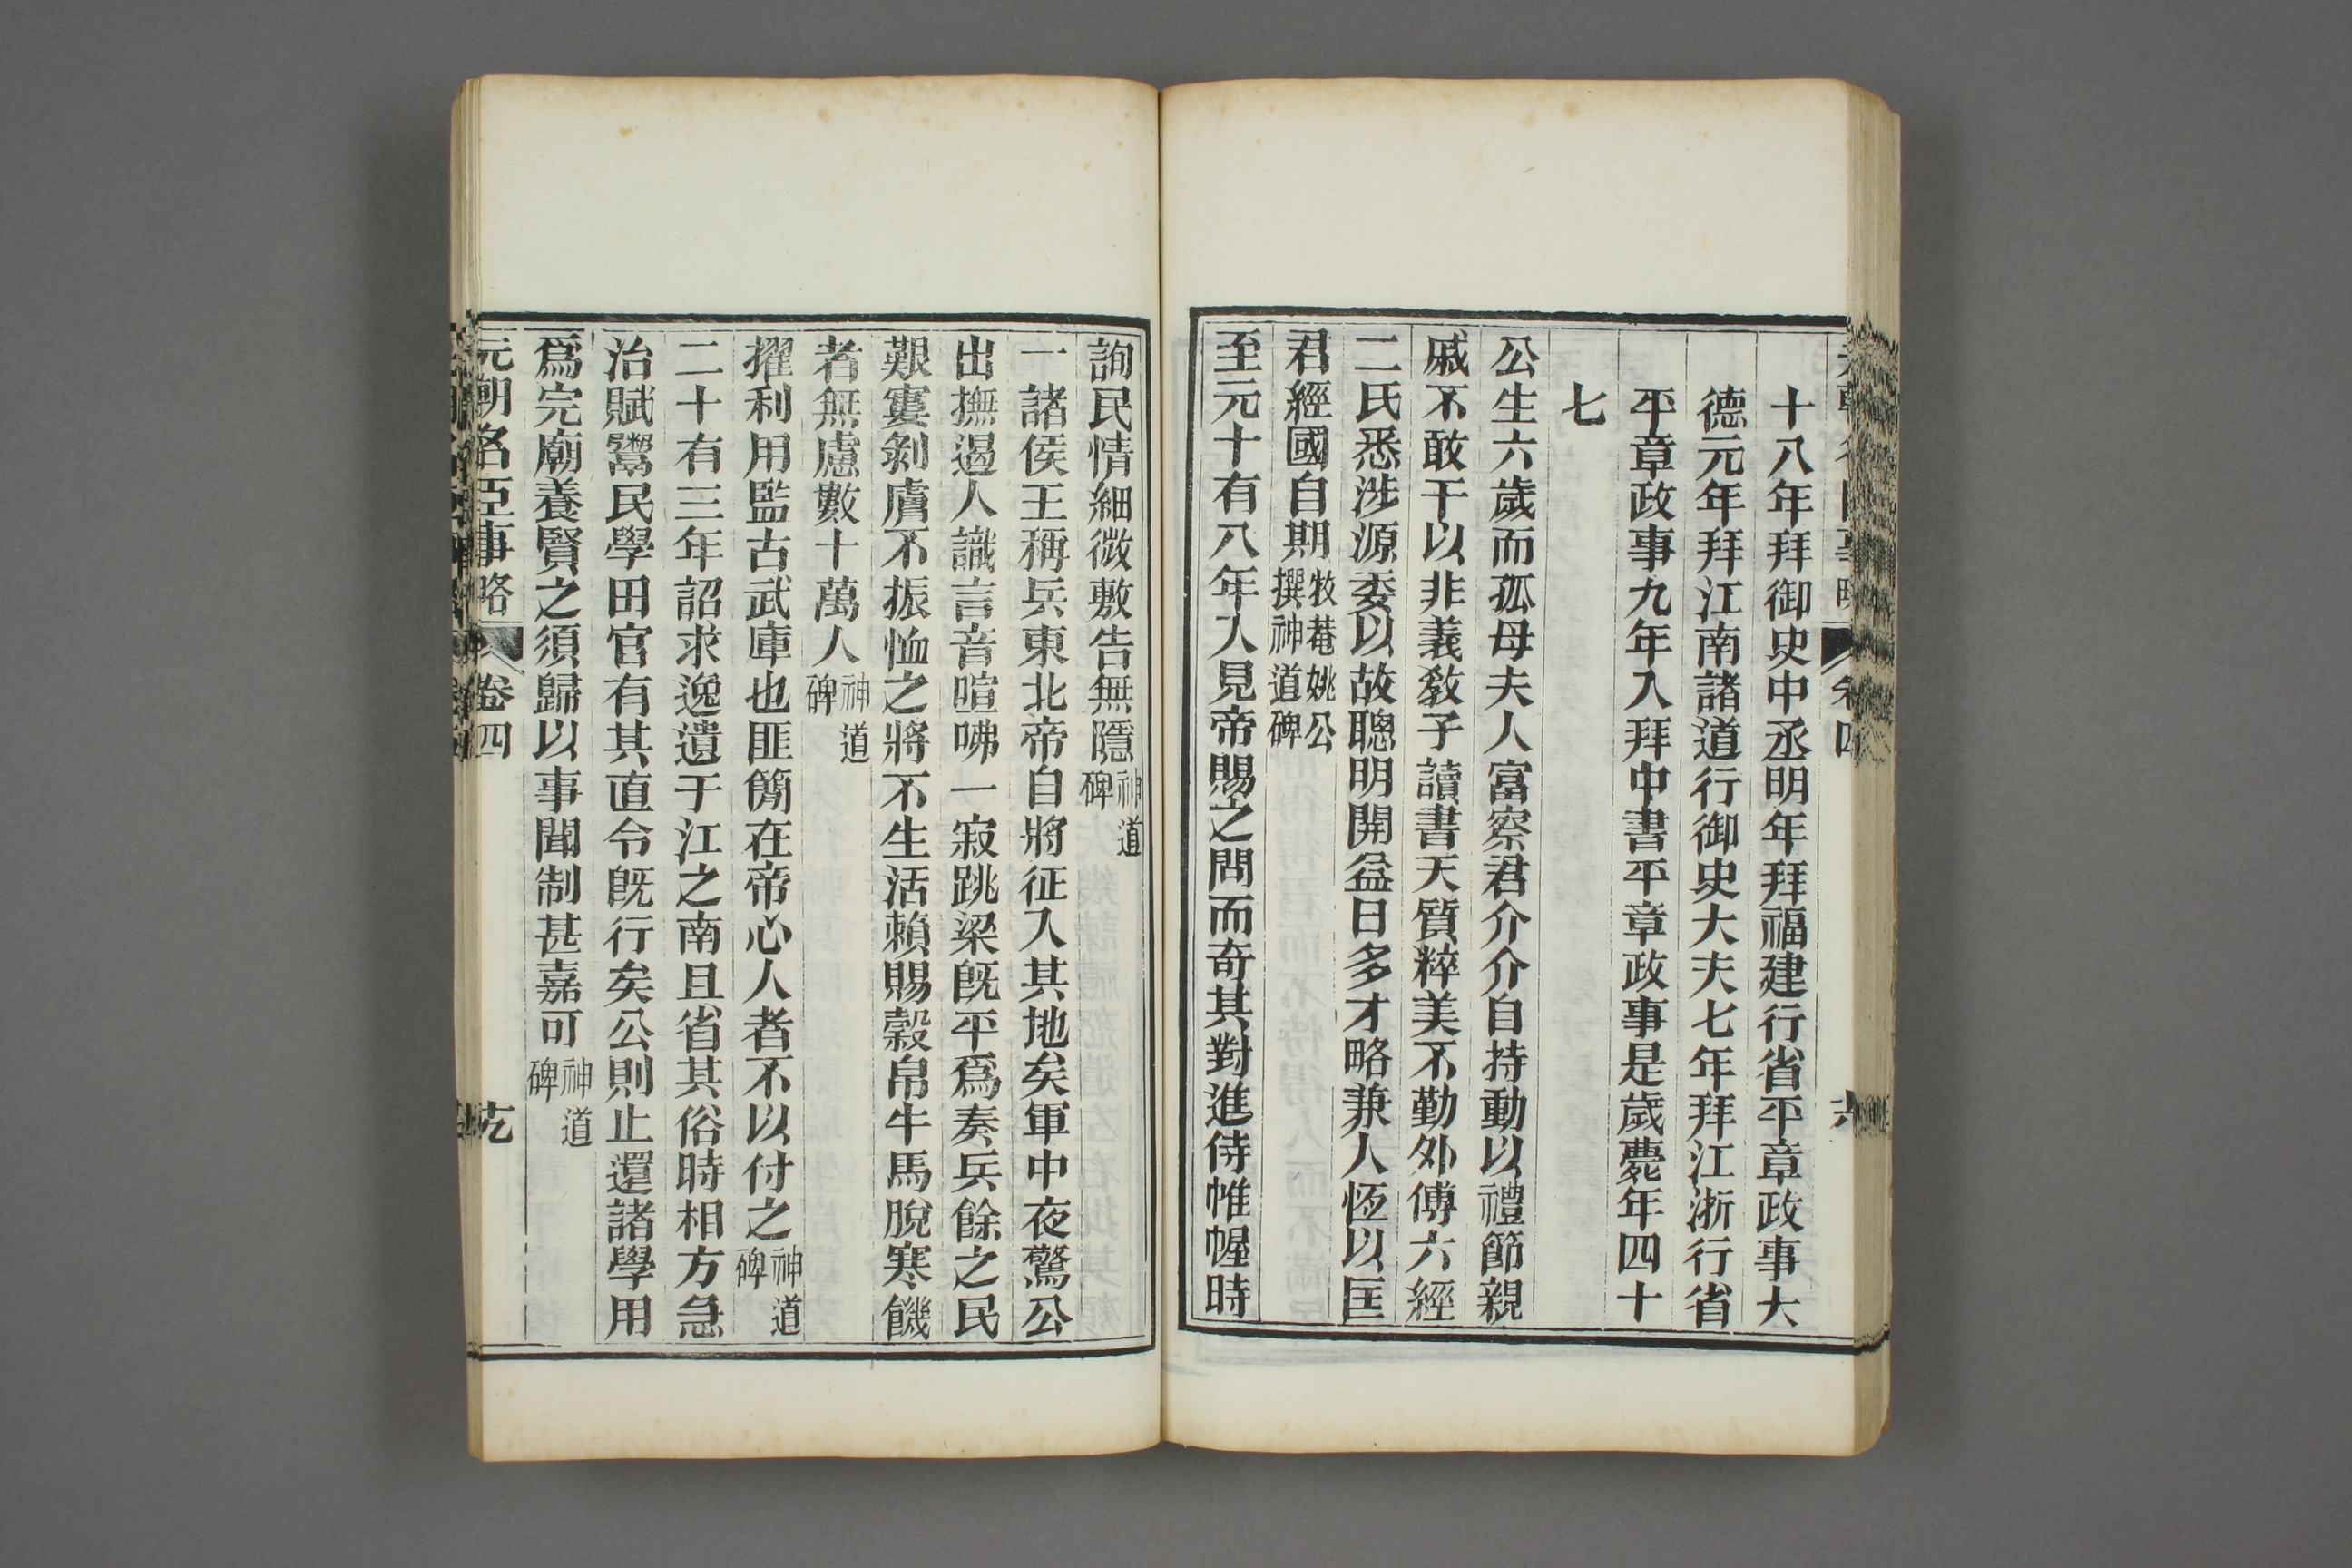 十八年拜御史中丞明年拜福建行省平章政事大
德元年拜江南諸道行御史大夫七年拜江浙行省
平章政事九年入拜中書平章政事是歲薨年四十
七
公生六歲而孤母夫人富察君介介自持動以禮節親
戚不敢干以非義敎子讀書天質粹美不勤外傅六經
二氏悉涉源委以故聰明開益日多才略兼人恆以匡
君經國自期牧菴姚公撰神道碑
至元十有八年入見帝賜之問而奇其對進侍帷幄時
詢民情細微敷告無隱神道碑
一諸侯王稱兵東北帝自將征入其地矣軍中夜驚公
出撫遏人識言音喧咈一寂跳梁旣平爲奏兵餘之民
艱窶剝膚不振恤之將不生活賴賜穀帛牛馬脫寒饑
者無慮數十萬人神道碑
擢利用監古武庫也匪簡在帝心人者不以付之神道碑
二十有三年詔求逸遺于江之南且省其俗時相方急
治賦鬻民學田官有其直令旣行矣公則止還諸學用
爲完廟養賢之須歸以事聞制甚嘉可神道碑
元朝名臣事略 卷四